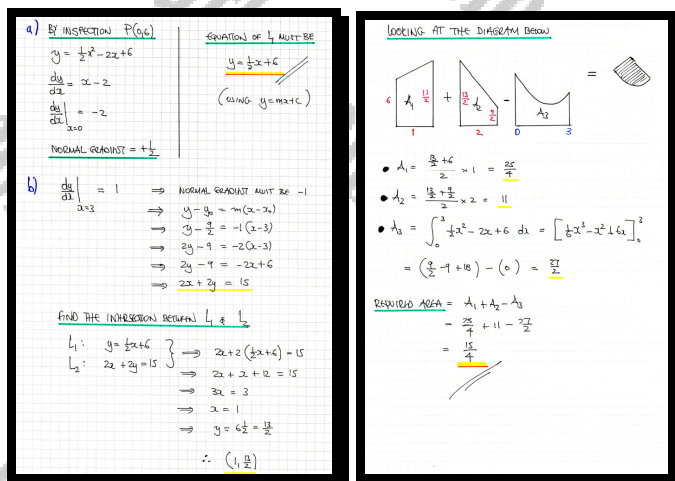 a) BY INSPECTION P(0,6)
y = ½x² - 2x + 6
dy/dx = x - 2
dy/dx |x=0 = -2
NORMAL GRADIENT = +½
EQUATION OF L₁ MUST BE
y = ½x + 6
(USING y = mx + c)
b) dy/dx |x=3 = 1 ⇒ NORMAL GRADIENT MUST BE -1
⇒ y - y₀ = m(x - x₀)
⇒ y - 9/2 = -1(x - 3)
⇒ 2y - 9 = -2(x - 3)
⇒ 2y - 9 = -2x + 6
⇒ 2x + 2y = 15
FIND THE INTERSECTION BETWEEN L₁ & L₂
L₁: y = ½x + 6
L₂: 2x + 2y = 15
⇒ 2x + 2(½x + 6) = 15
⇒ 2x + x + 12 = 15
⇒ 3x = 3
⇒ x = 1
⇒ y = 6½ = 13/2
∴ (1, 13/2)
LOOKING AT THE DIAGRAM BELOW
6 A₁ 13/2 + 13/2 A₂ 9/2 - A₃ =
1 2 0 3
• A₁ = (13/2 + 6)/2 × 1 = 25/4
• A₂ = (13/2 + 9/2)/2 × 2 = 11
• A₃ = ∫₀³ ½x² - 2x + 6 dx = [⅙x³ - x² + 6x]₀³
= (9/2 - 9 + 18) - (0) = 27/2
REQUIRED AREA = A₁ + A₂ - A₃
= 25/4 + 11 - 27/2
= 15/4